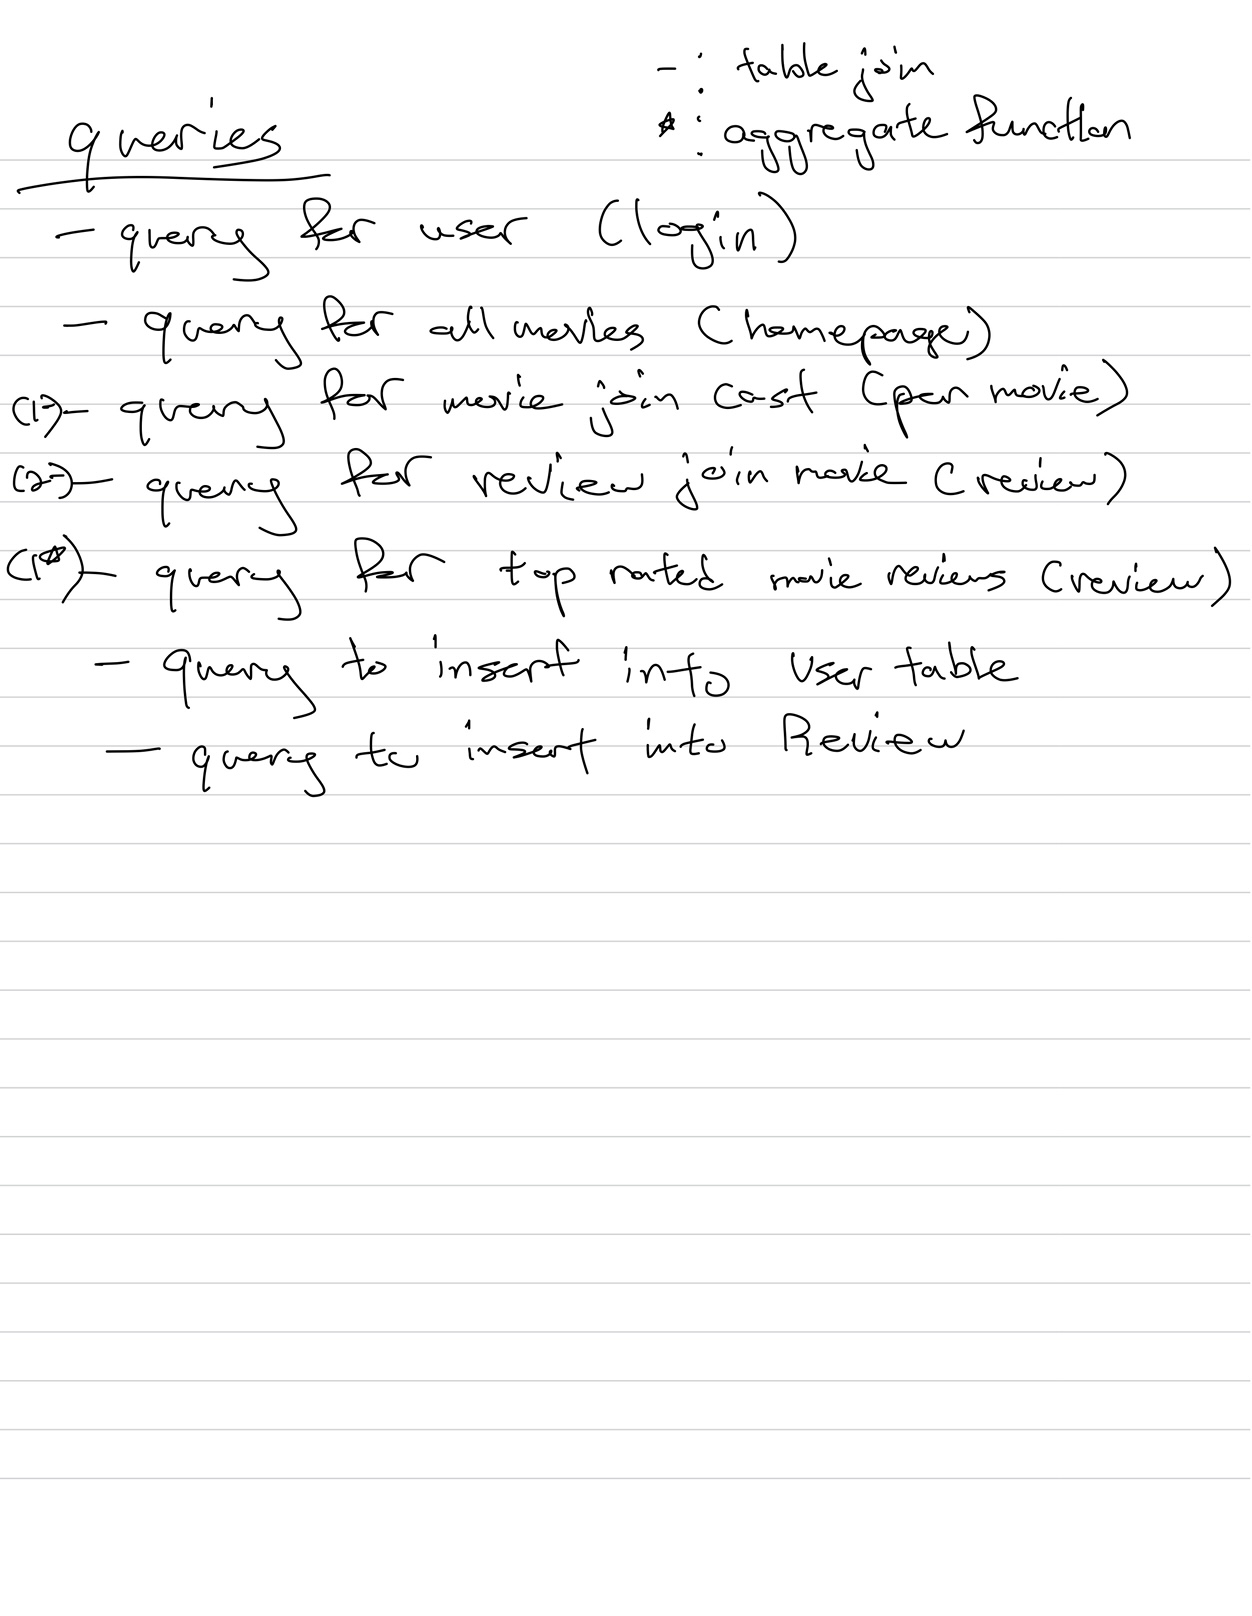 - : table join
* : aggregate function
queries
- query for user (login)
- query for all movies (homepage)
(1-) - query for movie join cast (per movie)
(2-) - query for review join movie (review)
(1*) - query for top rated movie reviews (review)
- query to insert into User table
- query to insert into Review